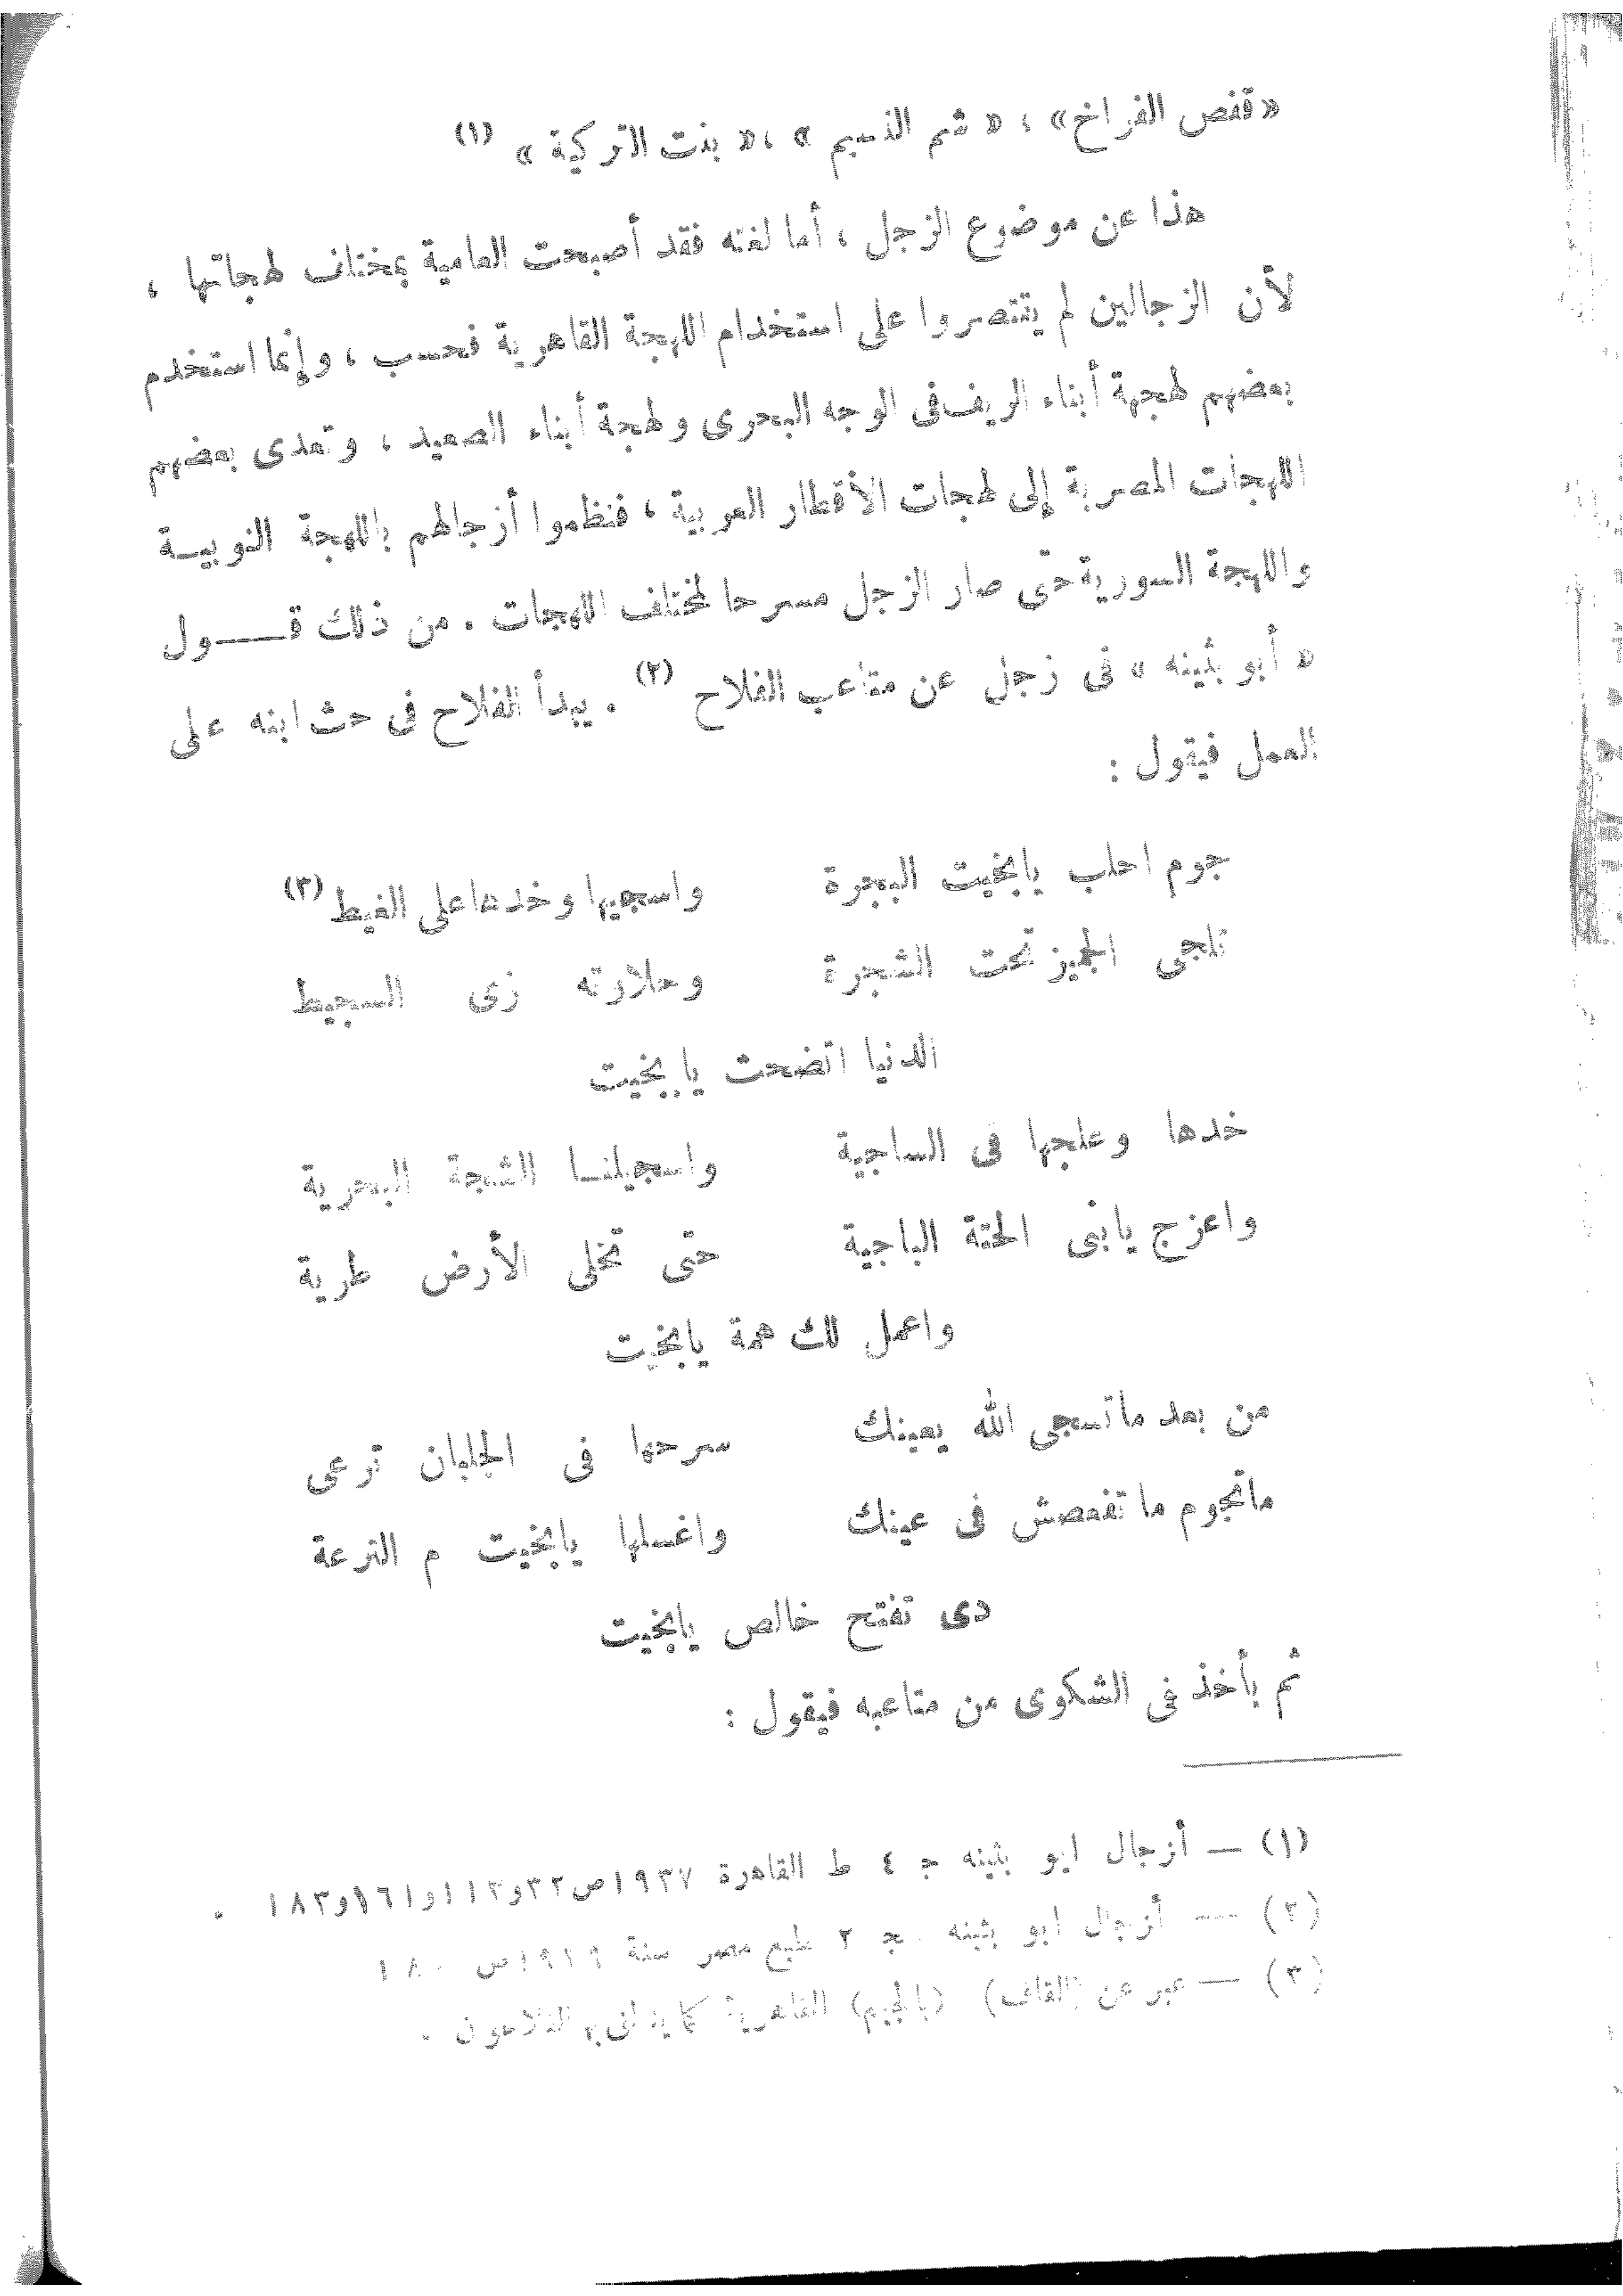 «قفص الفراخ» ، « شم النسيم » ،« بنت التركية » (١)
هذا عن موضوع الزجل ، أما لغته فقد أصبحت العامية بمختلف لهجاتها ،
لأن الزجالين لم يقتصروا على استخدام اللهجة القاهرية فحسب ، وإنما استخدم
بعضهم لهجة أبناء الريف فى الوجه البحرى ولهجة أبناء الصعيد ، وتعدى بعضهم
اللهجات المصرية إلى لهجات الأقطار العربية ، فنظموا أزجالهم باللهجة النوبيـة
واللهجة السورية حتى صار الزجل مسرحا لمختلف اللهجات . من ذلك قــول
« أبو بثينه » فى زجل عن متاعب الفلاح (٢) . يبدأ الفلاح فى حث ابنه على
العمل فيقول :
جوم احلب يابخيت البجرة واسجيها وخدها على الغيط (٣)
تلجى الجميز تحت الشجرة وحلاوته زى السجيط
الدنيا اتضحت يابخيت
خدها وعلجها فى الساجية واسجيلنـا الشجة البحرية
واعزج يابنى الحتة الباجية حتى تخلى الأرض طرية
واعمل لك همة يابخيت
من بعد ماتسجى الله يعينك سرحها فى الجلبان ترعى
ماتجوم ماتفعصش فى عينك واغسلها يابخيت م الترعة
دى تفتح خالص يابخيت
ثم يأخذ فى الشكوى من متاعبه فيقول :
(١) — أزجال ابو بثينه ج ٤ ط القاهرة ١٩٣٧ ص ٣٣ و ١١٣ و ١٦١ و ١٨٣ .
(٢) — أزجال ابو بثينه ج ٢ طبع مصر سنة ص ١٨٠
(٣) — عبر عن (القاف) (بالجيم) القاهرية كما الفلاحون .